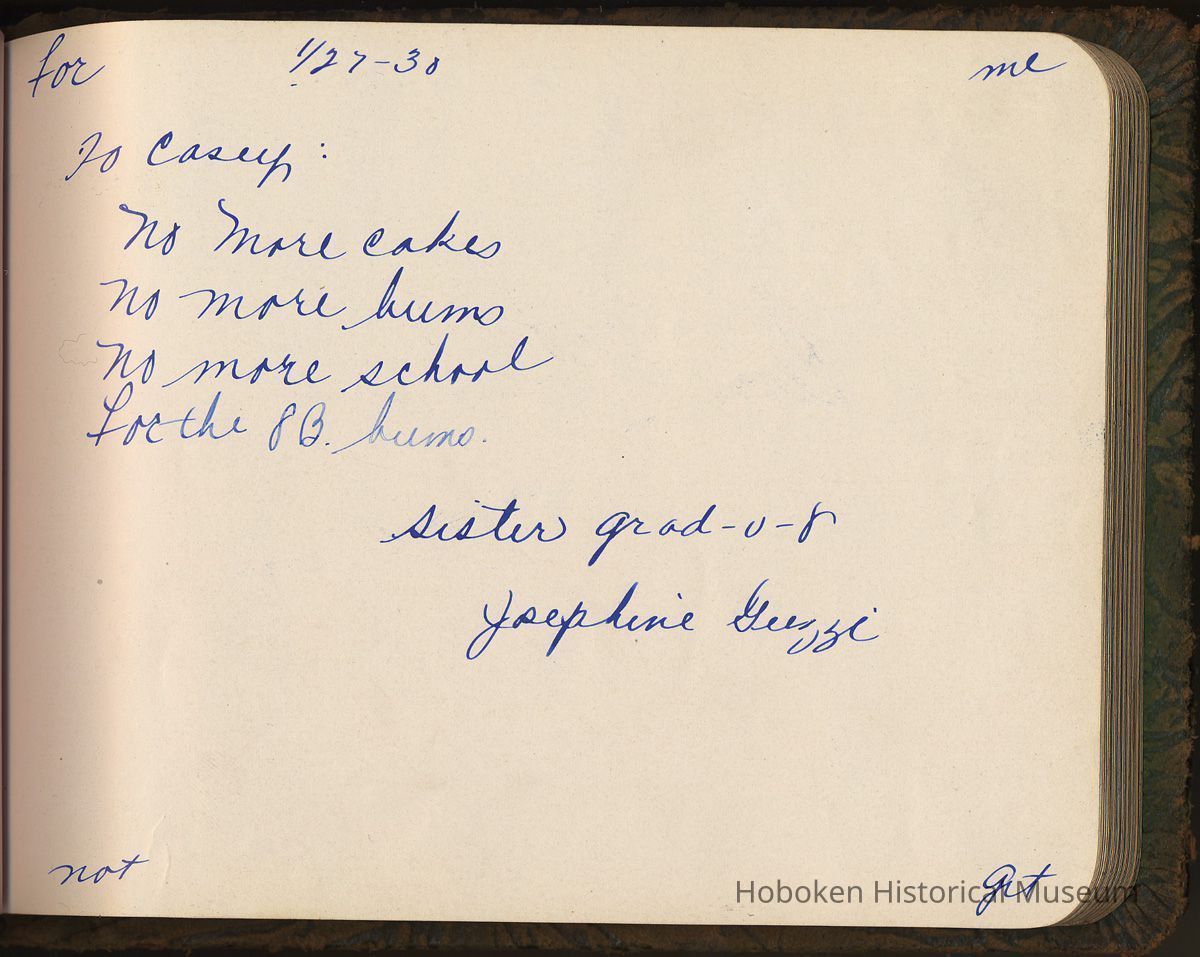 for 1/27-30 me
To Casey:
No More cakes
No more bums
No more school
For the 8B. bums.
sister grad-u-8
Josephine Guzzi
not get
Hoboken Historical Museum